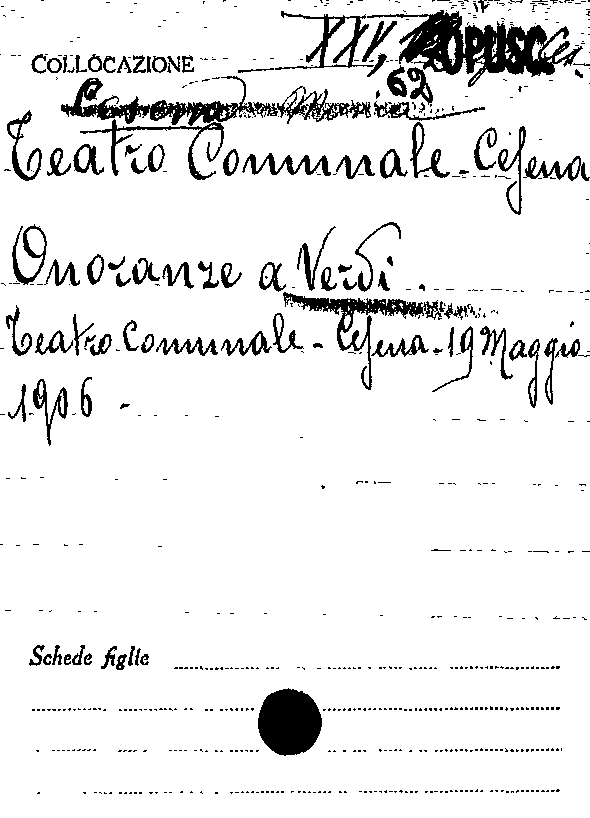 COLLOCAZIONE XXV, OPUSC. Ces.
62
Cesena
Teatro Comunale - Cesena
Onoranze a Verdi.
Teatro Comunale - Cesena - 19 Maggio
1906 -
Schede figlie